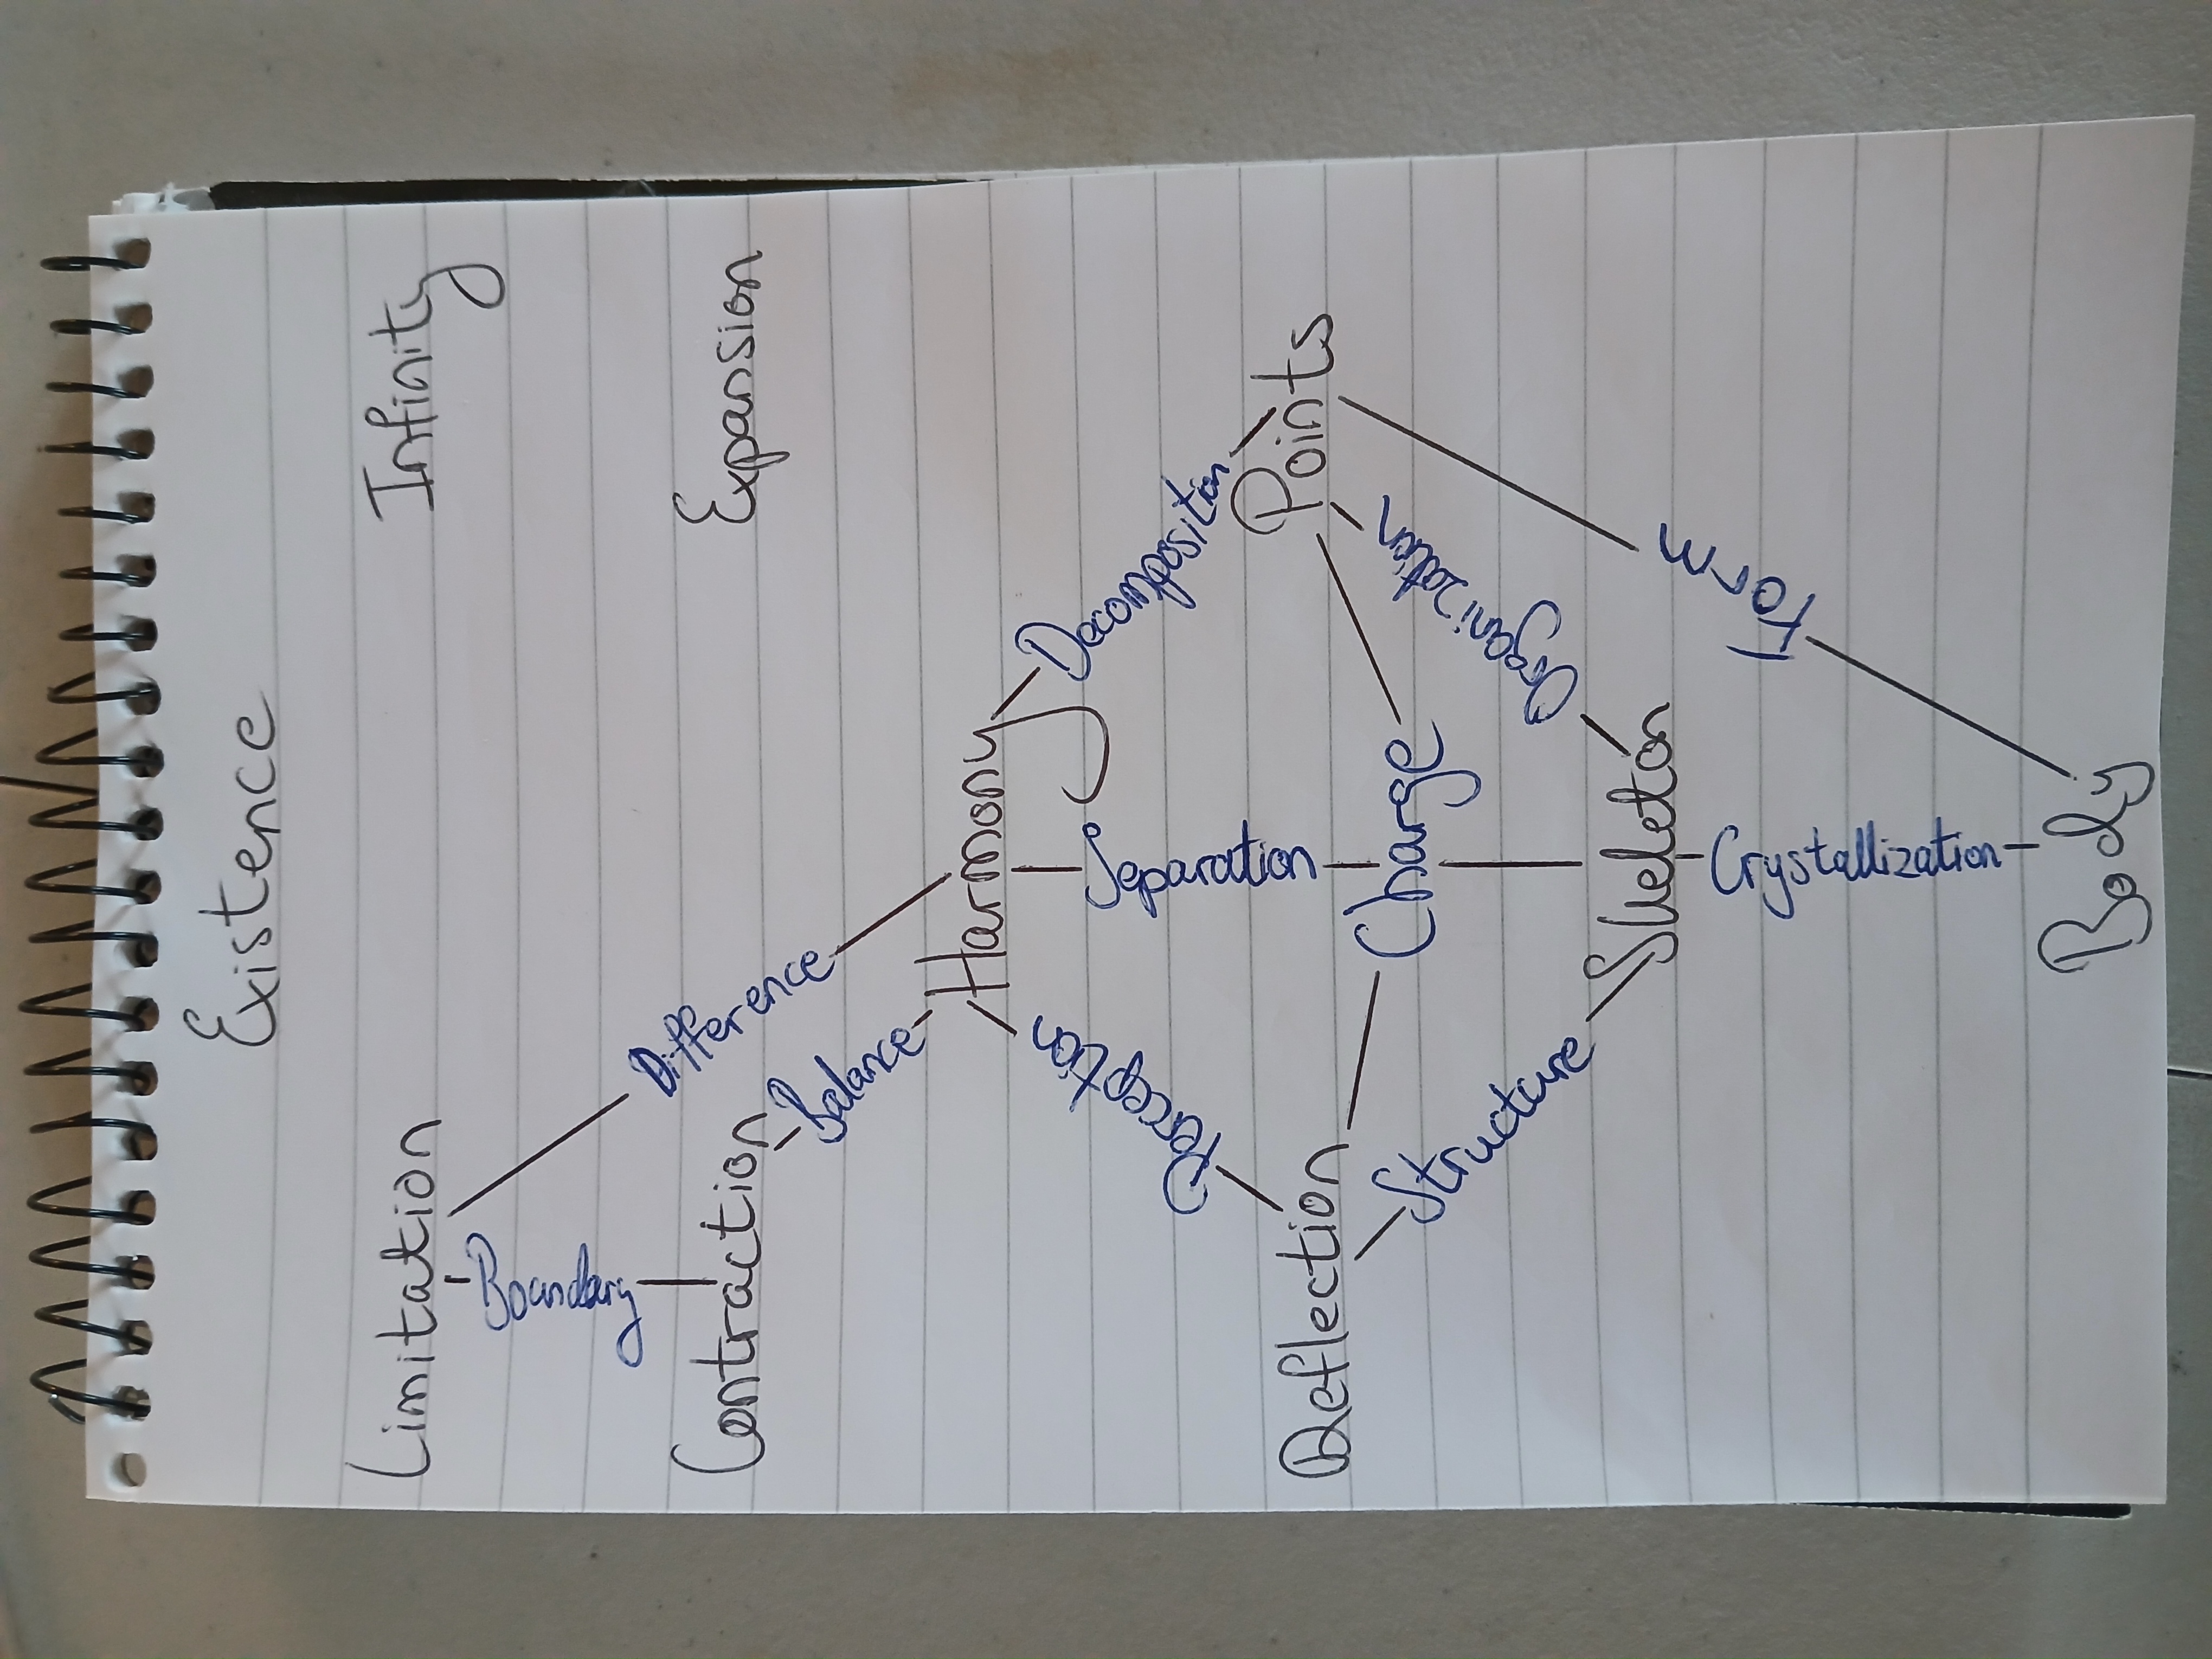 Existence
Limitation
Infinity
Boundary
Difference
Contraction
Expansion
Balance
Harmony
Perception
Separation
Decomposition
Reflection
Points
Charge
Structure
Organization
Skeleton
Form
Crystallization
Body